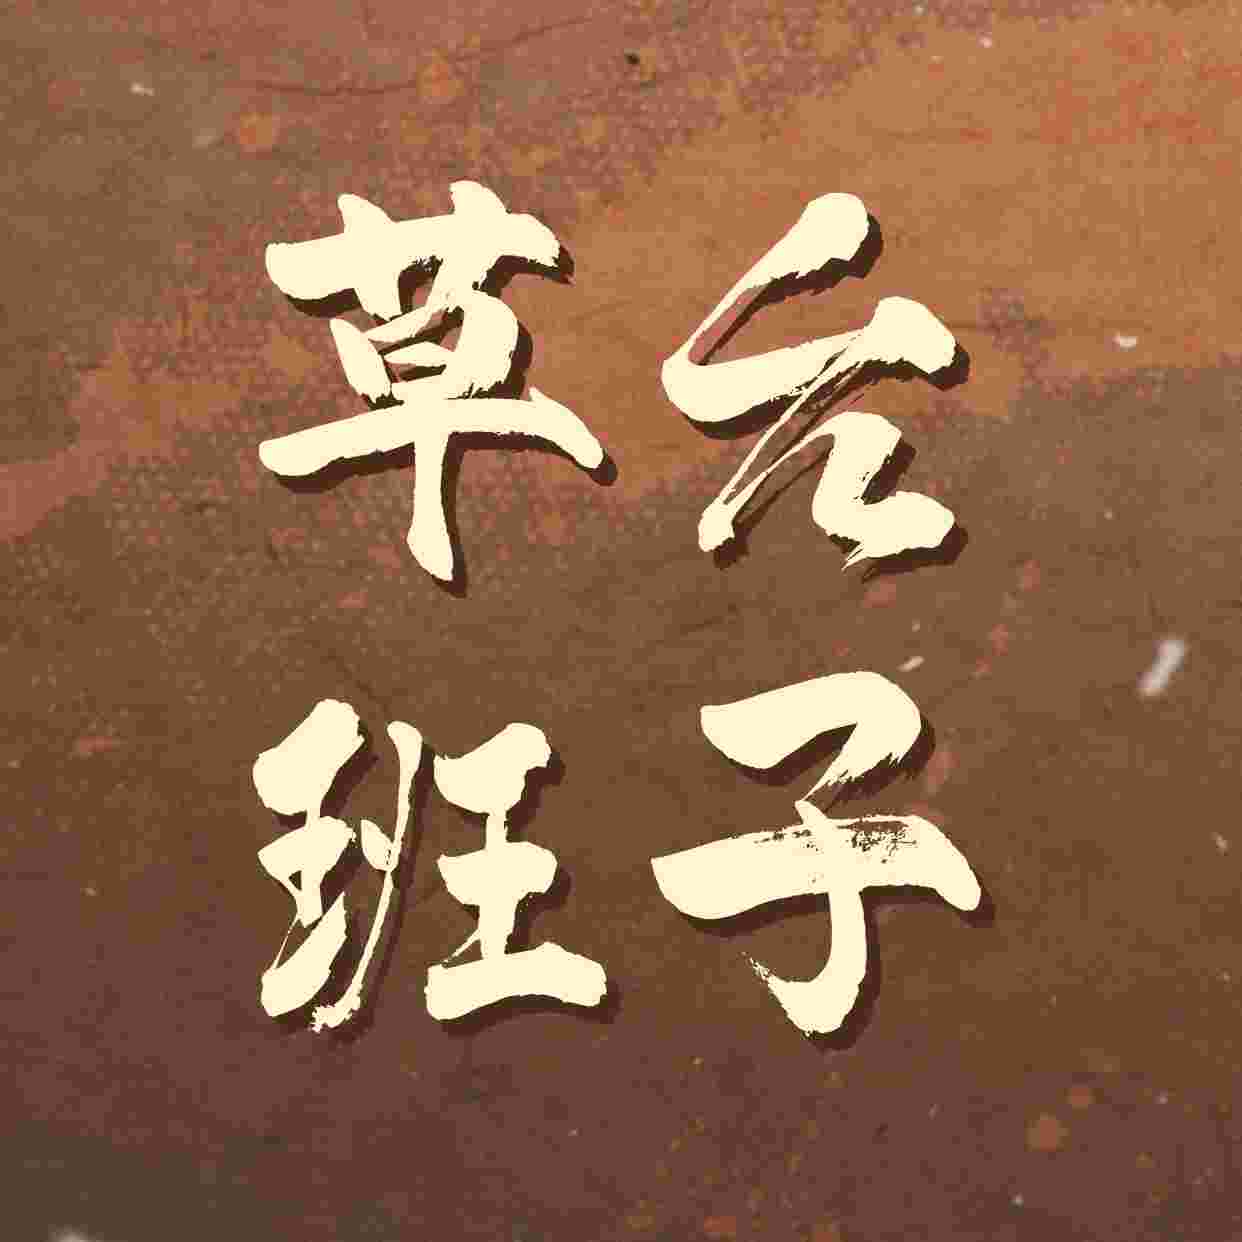 草台
班子